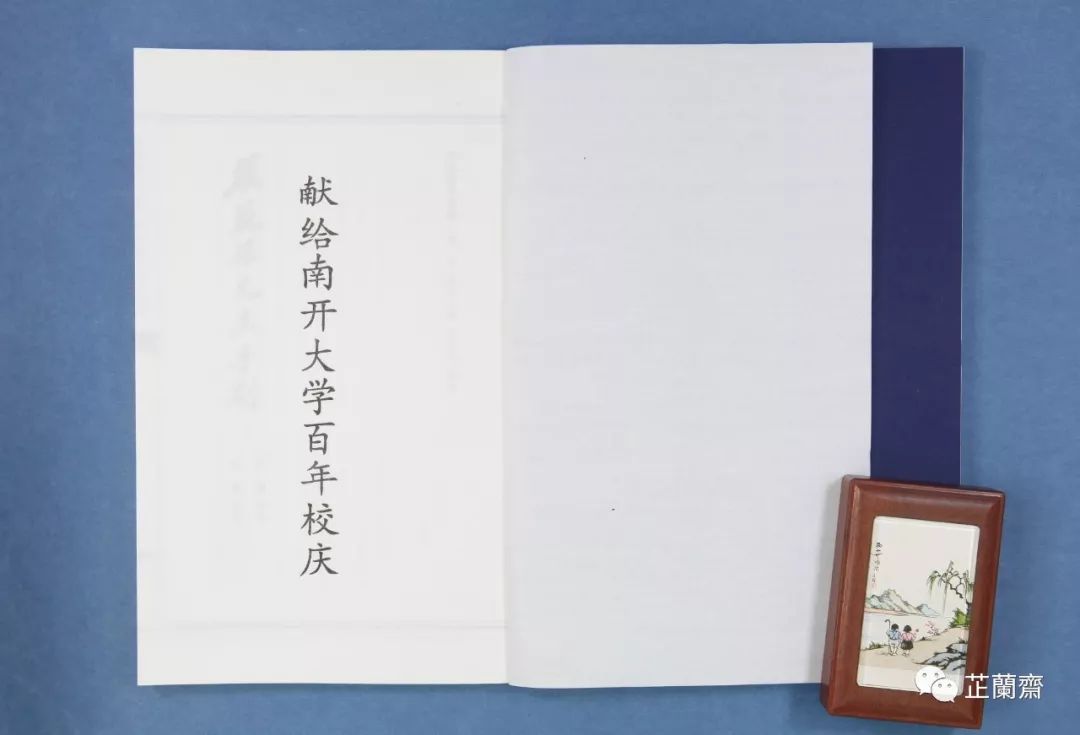 献给南开大学百年校庆
芷蘭齋